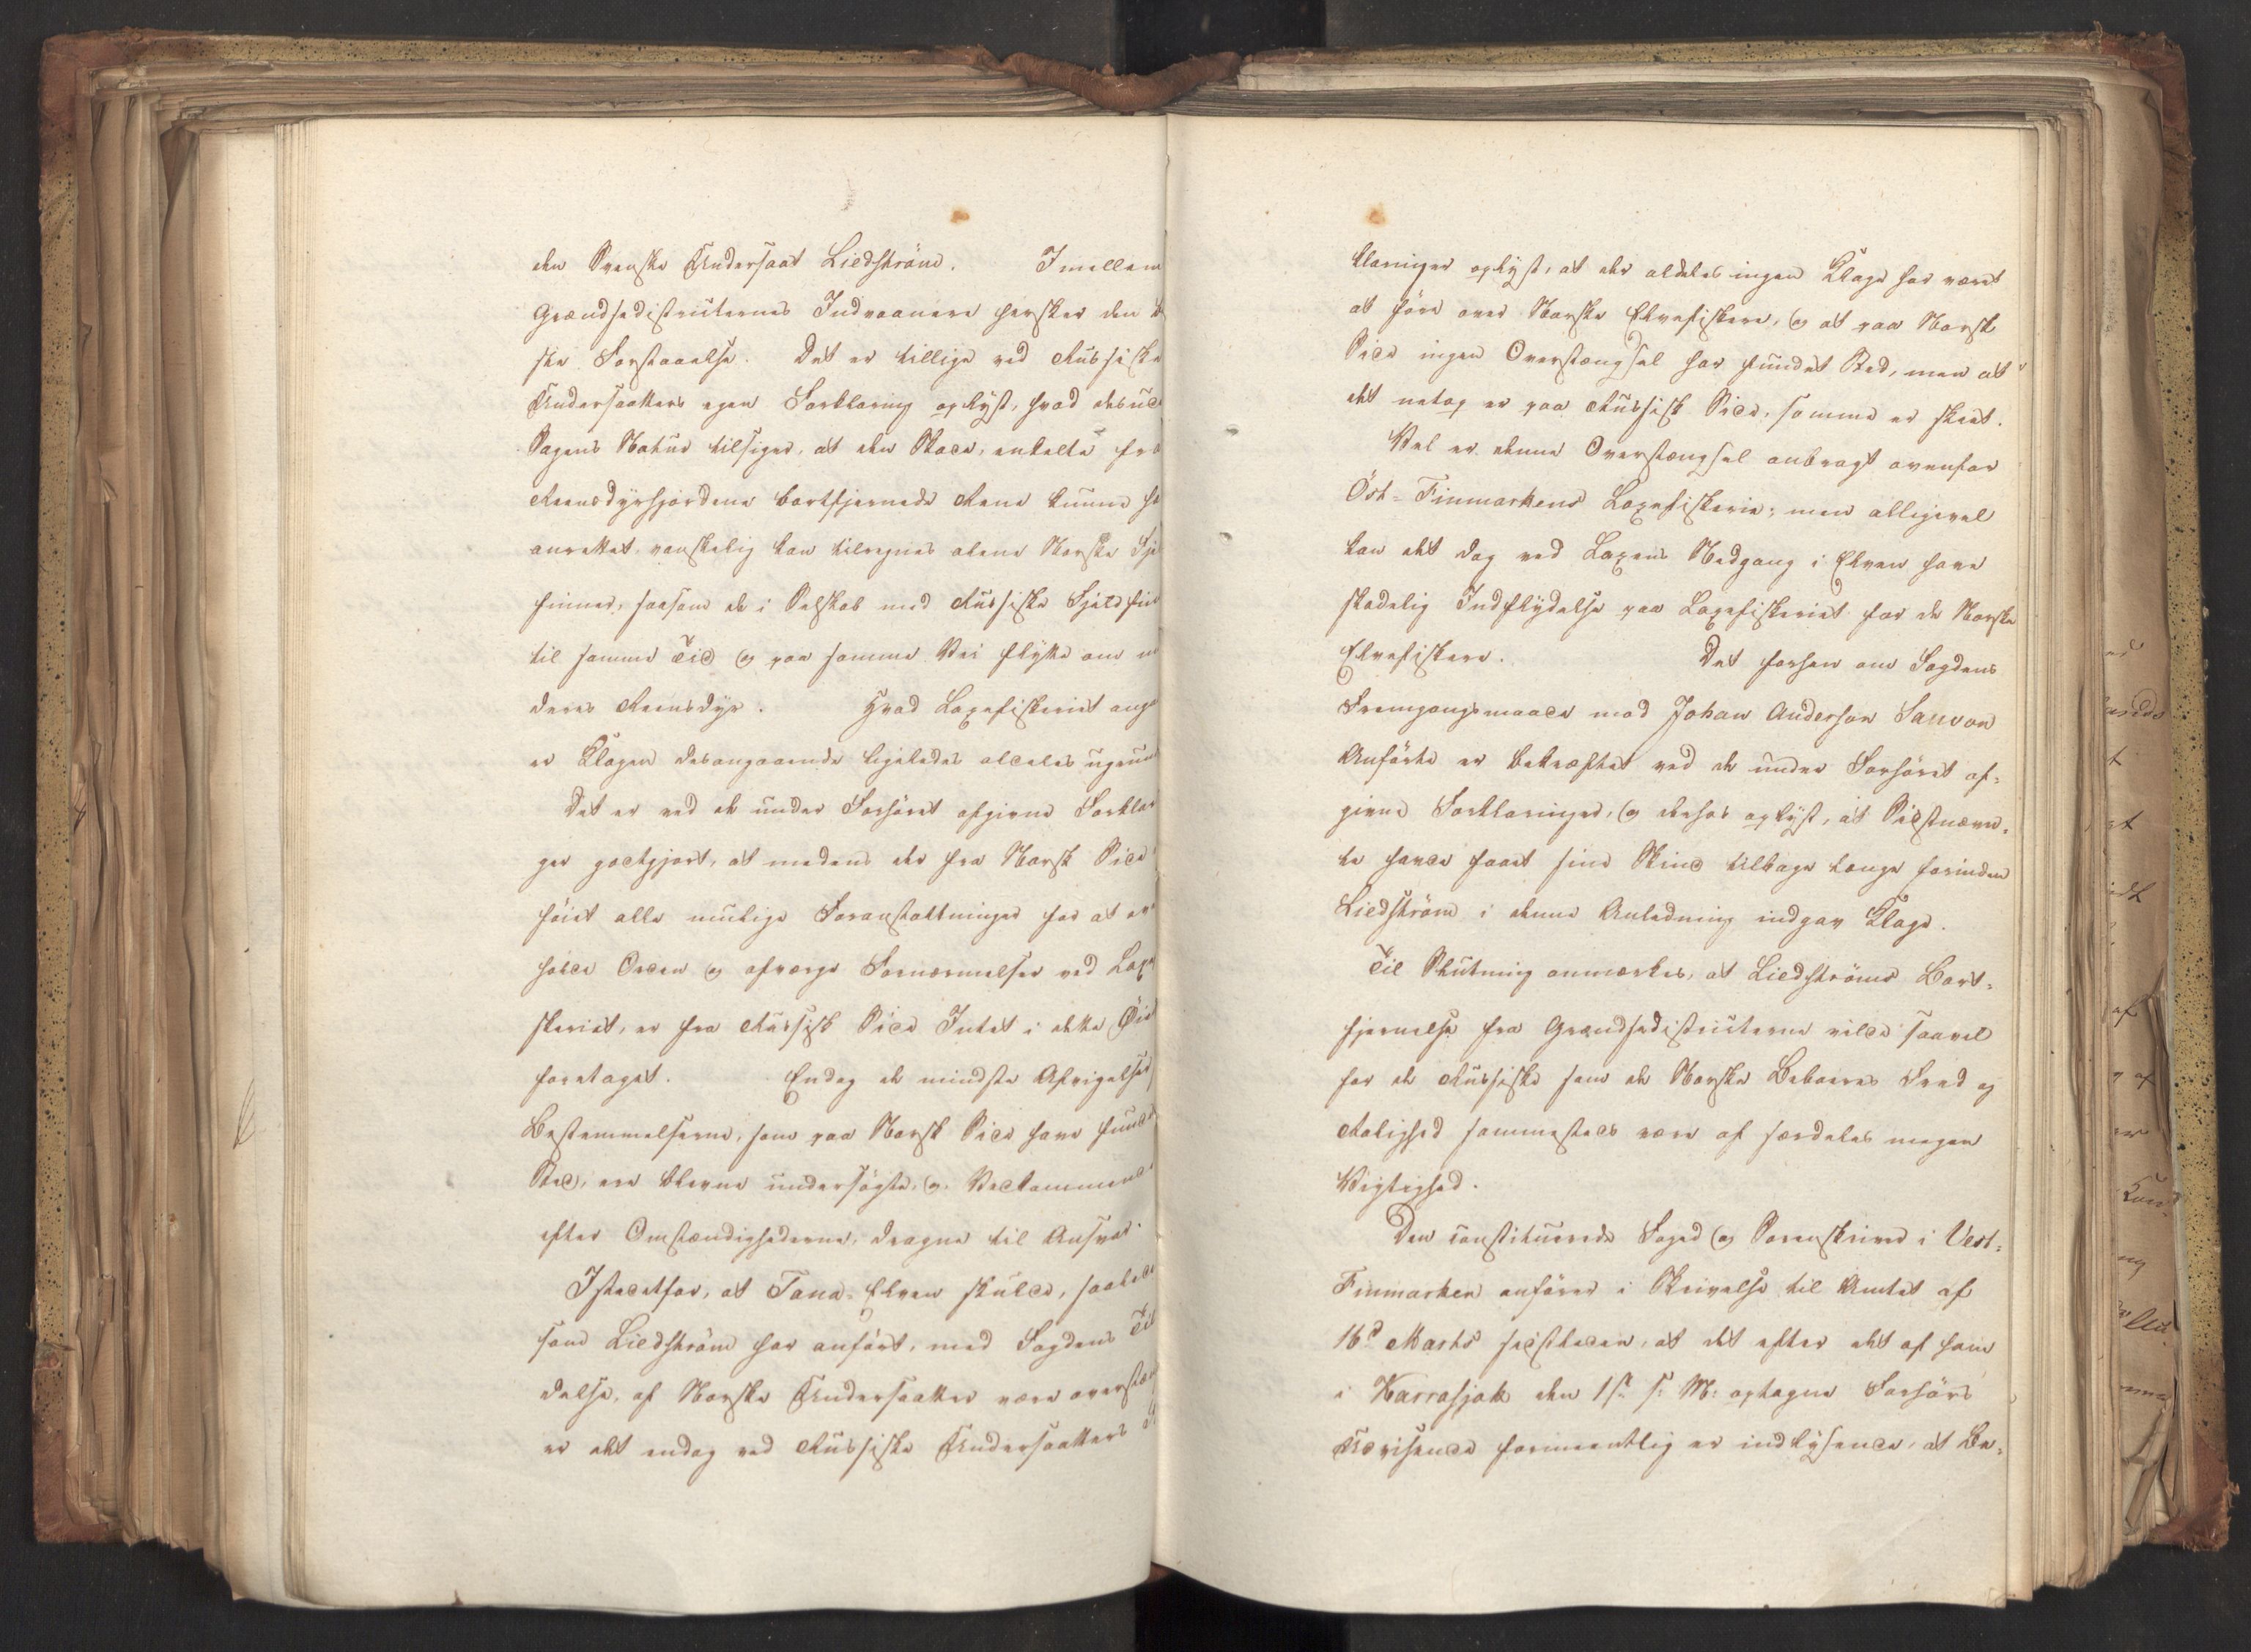 den Svenske Undersaat Liedström. Imellem
Grændsedistricternes Indvaanere hersker den b
ste Forstaaelse. Det er tillige ved Russiske
Undersaatters egen Forklaring oplyst, hvad desud
Sagens Natur tilsiger, at den Skade, enkelte fra
Reensdyrhjordene bortfjernede Rene kunne ha
anrettet vanskelig kan tilregnes alene Norske Fje
finner, saasom de i Selskab med Russiske Fjeldfin
til samme Tid og paa samme Vei flytte om m
deres Reensdyr. Hvad Laxefiskeriet anga
er Klagen desangaaende ligeledes aldeles ugrun
Det er ved de under Forhöret afgivne Forklar
ger godtgjort, at medens der fra Norsk Side
föiet alle mulige Foranstaltninger for at ov
holde Orden og afværge Fornærmelser ved Laxe
skeriet, er fra Russisk Side Intet i dette Øie
foretaget. Endog de mindste Afvigelser
Bestemmelserne, som paa Norsk Side have fund
Sted, ere blevne undersögte, og Vedkommende
efter Omstændighederne, dragne til Ansvar.
Istedetfor, at Tana-Elven skulde, saaled
som Liedström har anfört, med Fogdens Til
delse, af Norske Undersaatter være overstæn
er det endog ved Russiske Undersaatters
klaringer oplyst, at der aldeles ingen Klage har været
at före over Norske Elvefiskere, og at paa Norsk
Side ingen Overstængsel har fundet Sted, men at
det netop er paa Russisk Side, samme er skeet.
Vel er denne Overstængsel anbragt ovenfor
Öst-Finmarkens Laxefiskerie; men alligevel
kan det dog ved Laxens Nedgang i Elven have
skadelig Indflydelse paa Laxefiskeriet for de Norske
Elvefiskere. Det forhen om Fogdens
Fremgangsmaade mod Johan Anderson Sauvon
Anförte er bekræftet ved de under Forhöret af-
givne Forklaringer, og derhos oplyst, at Sidstnævn-
te havde faaet sine Skind tilbage længe forinden
Liedström i denne Anledning indgav Klage.
Til Slutning anmærkes, at Liedströms Bort-
fjernelse fra Grændsedistricterne vilde saavel
for de Russiske som de Norske Beboeres Fred og
Rolighed sammesteds være af særdeles megen
Vigtighed.
Den constituerede Foged og Sorenskriver i Vest-
Finmarken anförer i Skrivelse til Amtet af
16d Marts sidstleden, at det efter det af ham
i Karrasjok den 1ste s: M: optagne Forhörs
Udvisende formeentlig er indlysende, at Be-